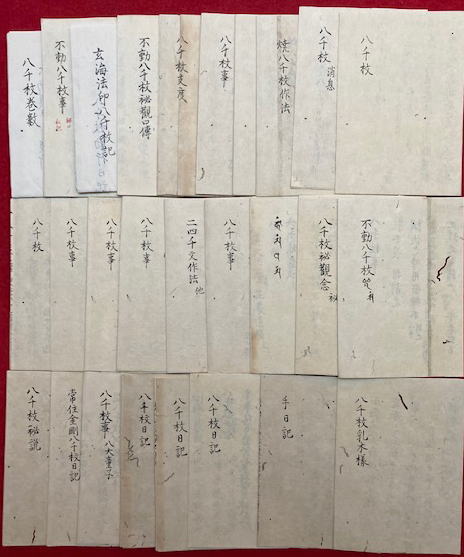 八千枚
八千枚 消息
焼八千枚作法
八千枚事
八千枚支度
不動八千枚秘観口傳
玄海法印八千枚記
不動八千枚事
八千枚巻数
不動八千枚
八千枚秘観念 秘
八千枚事
二四千文作法 他
八千枚事
八千枚事
八千枚事
八千枚
八千枚乳木様
手日記
八千枚日記
八千枚日記
八千枚日記
八千枚事 八大童子
常住金剛八千枚日記
八千枚秘説